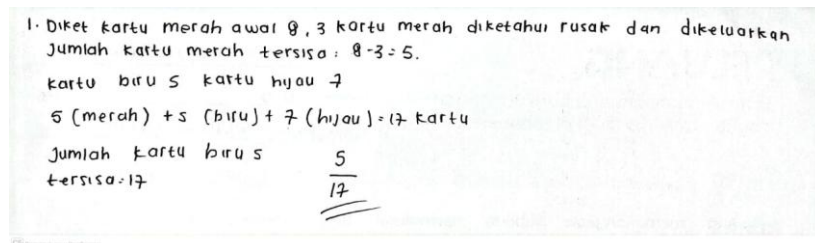 1. Diket kartu merah awal 8, 3 kartu merah diketahui rusak dan dikeluarkan
Jumlah kartu merah tersisa : 8-3=5.
kartu biru 5 kartu hijau 7
5 (merah) + 5 (biru) + 7 (hijau) = 17 kartu
Jumlah kartu biru 5
tersisa : 17
5
17